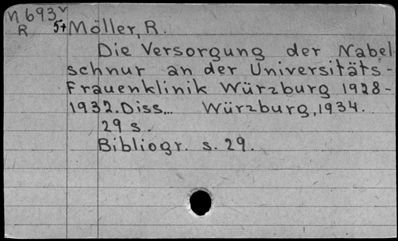 N693v
R 5+ Möller, R.
Die Versorgung der Nabel
schnur an der Universitäts-
Frauenklinik Würzburg 1928-
1932. Diss... Würzburg, 1934.
29 s.
Bibliogr. s. 29.